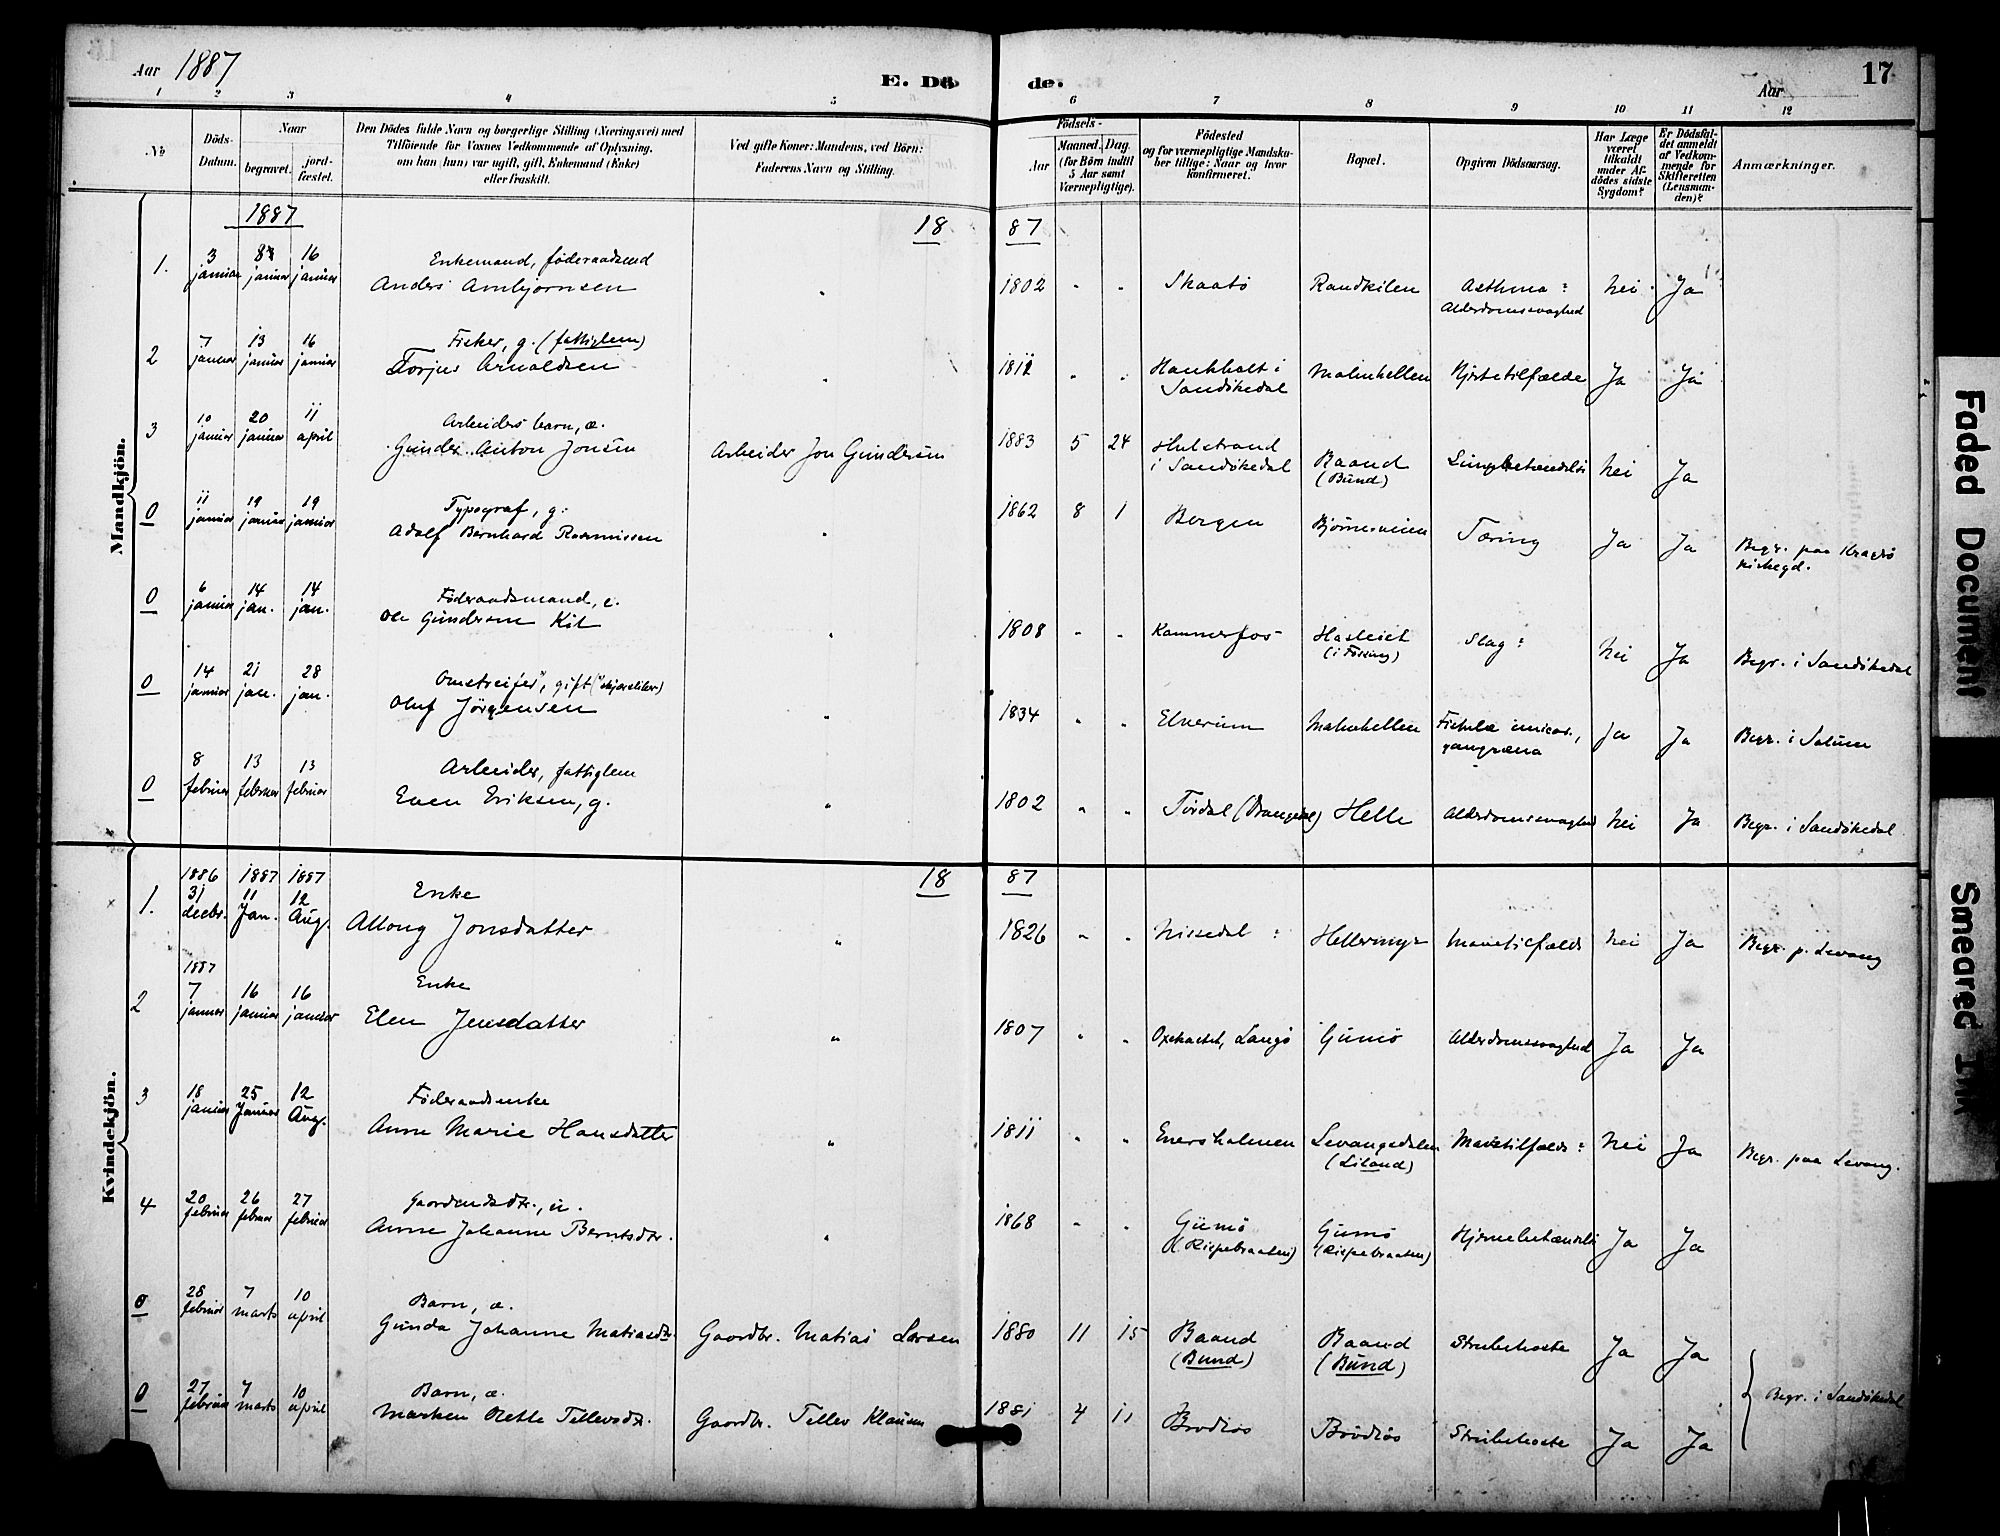 Aar 1887
E. Dö
de.
17
Aar
1 2 3 4 5 6 7 8 9 10 11 12
No
Döds-Datum.
Naar
begravet.
jord-fæstet.
Den Dödes fulde Navn og borgerlige Stilling (Næringsvei) med
Tilföiende for Voxnes Vedkommende af Oplysning,
om han (hun) var ugift, gift, Enkemand (Enke)
eller fraskilt.
Ved gifte Koner: Mandens, ved Börn:
Faderens Navn og Stilling.
Födsels-
Aar
Maaned. Dag.
(for Börn indtil
5 Aar samt
Værnepligtige).
Födested
og for værnepligtige Mandska-
ber tillige: Naar og hvor
konfirmeret.
Bopæl.
Opgiven Dödsaarsag.
Har Læge
været
tilkaldt
under Af-
dödes sidste
Sygdom?
Er Dödsfal-
det anmeldt
af Vedkom-
mende for
Skifteretten
(Lensman-
den)?
Anmærkninger.
Mandkjön.
1887
18 87
1. 3 januar 8 januar 16 januar Enkemand, föderaadsmd
Anders Ambjørnsen " 1802 " " Skaatö Randkilen Asthma: Alderdomssvaghed Nei Ja
2 7 januar 13 januar 16 januar Fisker, g. (fattiglem)
Torjus Arnoldsen " 1812 " " Haukholt i Sandökedal Malmhellen Hjertetilfælde Ja Ja
3 10 januar 20 januar 11 april Arbeiders barn, æ.
Gunder Anton Jonsen Arbeider Jon Gundersen 1883 5 24 Hulstrand i Sandökedal Baand (Bund) Lungebetændelse Nei Ja
0 11 januar 19 januar 19 januar Typograf, g.
Adolf Bernhard Rasmussen " 1862 8 1 Bergen Bjørnesveien Tæring Ja Ja Begr. paa Kragerö kirkegd.
0 6 januar 14 jan. 14 jan. Föderaadsmand, e.
Ole Gundersen Kil " 1808 " " Kammerfos Hasleiet (i Fossing) Slag: Nei Ja Begr. i Sandökedal
0 14 januar 21 jan. 28 jan. "Omstreifer", gift
Oluf Jörgensen " 1834 " " Elverum Malmhellen gangræna Ja Ja Begr. i Solum
0 8 februar 13 februar 13 februar Arbeider, fattiglem
Even Eriksen, g. " 1802 " " Tördal (Drangedal) Helle Alderdomssvaghed Nei Ja Begr. i Sandökedal
Kvindekjön.
18 87
1. 1886 31 decbr. 1887 11 Jan. 1887 12 Aug. Enke
Allong Jonsdatter " 1826 " " Nissedal : Mavetilfælde Nei Ja Begr. p. Levang
2 1887 7 januar 16 januar 16 januar Enke
Elen Jensdatter " 1807 " " Langö Gumö Alderdomssvaghed Ja Ja
3 18 januar 25 Januar 12 Aug. Föderaadsenke
Anne Marie Hansdatter " 1811 " " Eversholmen Levangsdalen (Liland) Mavetilfælde: Nei Ja Begr. paa Levang.
4 20 februar 26 februar 27 februar Gaardmdsdtr., u.
Anne Johanne Berntsdtr. " 1868 " " Gumö (Rispebraaten) Gumö (Rispebraaten) Hjernebetændelse Ja Ja
0 28 februar 7 marts 10 april Barn, æ.
Gunda Johanne Matiasdtr. Gaardbr. Matias Larsen 1880 11 15 Baand (Bund) Baand (Bund) Strubehoste Ja Ja
0 27 februar 7 marts 10 april Barn, æ.
Marken Olette Tellevsdtr. Gaardbr. Tellev Klausen 1881 4 11 Brödlös Brödlös Strubehoste Ja Ja Begr. i Sandökedal
Faded Document
Smeared Ink